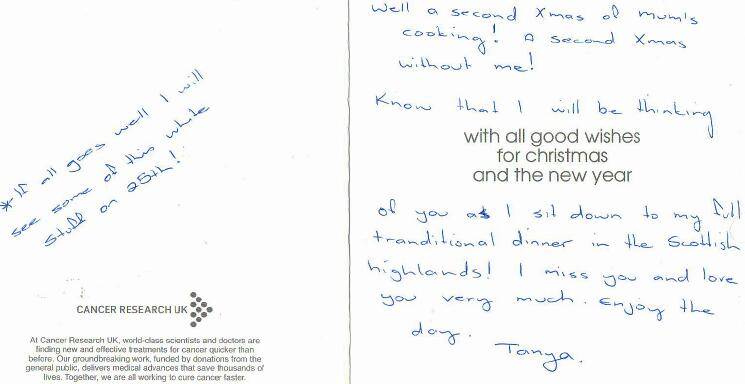 *If all goes well I will
see some of this white
stuff on 25th!
CANCER RESEARCH UK
At Cancer Research UK, world-class scientists and doctors are
finding new and effective treatments for cancer quicker than
before. Our groundbreaking work, funded by donations from the
general public, delivers medical advances that save thousands of
lives. Together, we are all working to cure cancer faster.
Well a second Xmas of mum's
cooking! A second Xmas
without me!
Know that I will be thinking
with all good wishes
for christmas
and the new year
of you as I sit down to my full
tranditional dinner in the Scottish
highlands! I miss you and love
you very much. Enjoy the
day.
Tanya.